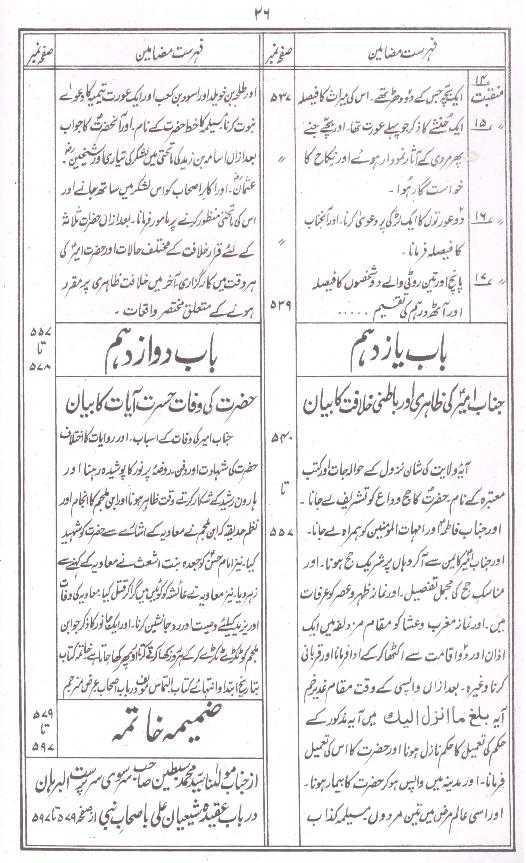 ۲۶
فہرست مضامین
صفحہ نمبر
منقبت ۱۴
ایک بچّے جس کے دو دھڑ تھے۔ اس کی میراث کا فیصلہ
۵۳۷
۱۵
ایک خنثےٰ کا ذکر جو پہلے عورت تھا۔ اور بچّے جنے
پھر مردی کے آثار نمودار ہوئے اور نکاح کا
خواستگار ہوا۔
۱۶
دو عورتوں کا ایک لڑکی پر دعویٰ کرنا۔ اور آنجناب
کا فیصلہ فرمانا۔
۱۷
پانچ اور تین روٹی والے دو شخصوں کا فیصلہ
اور آٹھ درہم کی تقسیم .....
۵۳۹
باب یازدہم
جناب امیرؑ کی ظاہری اور باطنی خلافت کا بیان
۵۴۰
تا
۵۵۷
آیۂ ولایت کی شان نزول کے حوالجات و کتب
معتبرہ کے نام۔ حضرتؐ کا حج وداع کو تشریف لے جانا۔
اور جناب فاطمہؑ اور امہات المؤمنین کو ہمراہ لے جانا۔
اور جناب امیرؑ کا یمن سے آکر وہاں پر شریک حج ہونا۔ اور
مناسک حج کی مجمل تفصیل۔ اور نماز ظہر و عصر کو عرفات
میں۔ اور نماز مغرب و عشا کو مقام مزدلفہ میں ایک
اذان اور دو اقامت سے اکٹھا کرکے ادا فرمانا اور قربانی
کرنا وغیرہ۔ بعد ازاں واپسی کے وقت مقام غدیر خم
آیہ بلغ ما انزل الیک میں آیہ مذکور کے
حکم کی تعمیل کا حکم نازل ہونا اور حضرت کا اس کی تعمیل
فرمانا۔ اور مدینہ میں واپس ہوکر حضرت کا بیمار ہونا۔
اور اسی عالم مرض میں تین مردوں مسیلمہ کذاب
فہرست مضامین
صفحہ نمبر
اور طلیحہ بن خویلد اور اسود بن کعب اور ایک عورت تیمیہ کا دعوےٰ
نبوت کرنا۔ مسیلمہ کا خط حضرت کے نام۔ اور آنحضرتؐ کا جواب
بعد ازاں اسامہ بن زید کی ماتحتی میں لشکر کی تیاری اور شیخینؓ۔
عثمانؓ۔ اور اکابر اصحاب کو اس لشکر میں ساتھ جانے اور
اس کی ماتحتی منظور کرنے پر مامور فرمانا۔ بعد ازاں حضرت ثلاثہ
کے لئے قرار خلافت کے مختلف حالات اور حضرت امیرؑ کی
ہر وقت میں کارگزاری۔ آخر میں خلافت ظاہری پر مقرر
ہونے کے متعلق مختصر واقعات۔
۵۵۷
تا
۵۷۸
باب دوازدہم
حضرت کی وفات حسرت آیات کا بیان
جناب امیر کی وفات کے اسباب۔ اور روایات کا اختلاف
حضرت کی شہادت اور دفن۔ روضۂ پر نور کا پوشیدہ رہنا اور
ہارون رشید کے شکار کرتے وقت ظاہر ہونا۔ اور ابن ملجم کا انجام اور
نظم حدیقہ کہ ابن ملجم نے معاویہ کے اشارے سے حضرت کو شہید
کیا۔ نیز امام حسنؑ کو جعدہ بنت اشعث نے معاویہ کے کہنے سے
زہر دیا۔ نیز معاویہ نے عائشہ کو کنوئیں میں گرا کر قتل کیا۔ معاویہ کی وفات
اور یزید کیلئے وصیت اور رد جانشین کرنا۔ اور ایک جانور کا ذکر جو ابن
ملجم کو ٹکڑے ٹکڑے کرکے ہر روز کھا کر قے کرتا اور پھر کھا جاتا ہے۔ خاتمہ کتاب
بتاریخ ابتدا و انتہائے کتاب التماس مؤلف درباب اصحاب عرض مترجم
۵۷۹
تا
۵۹۷
ضمیمہ خاتمہ
از جناب مولٰنا سید محمد سبطین صاحب سرسوی سرپرست البرہان
درباب عقیدہ شیعیان علی با صحاب نبی از صفحہ ۵۷۹ تا ۵۹۷